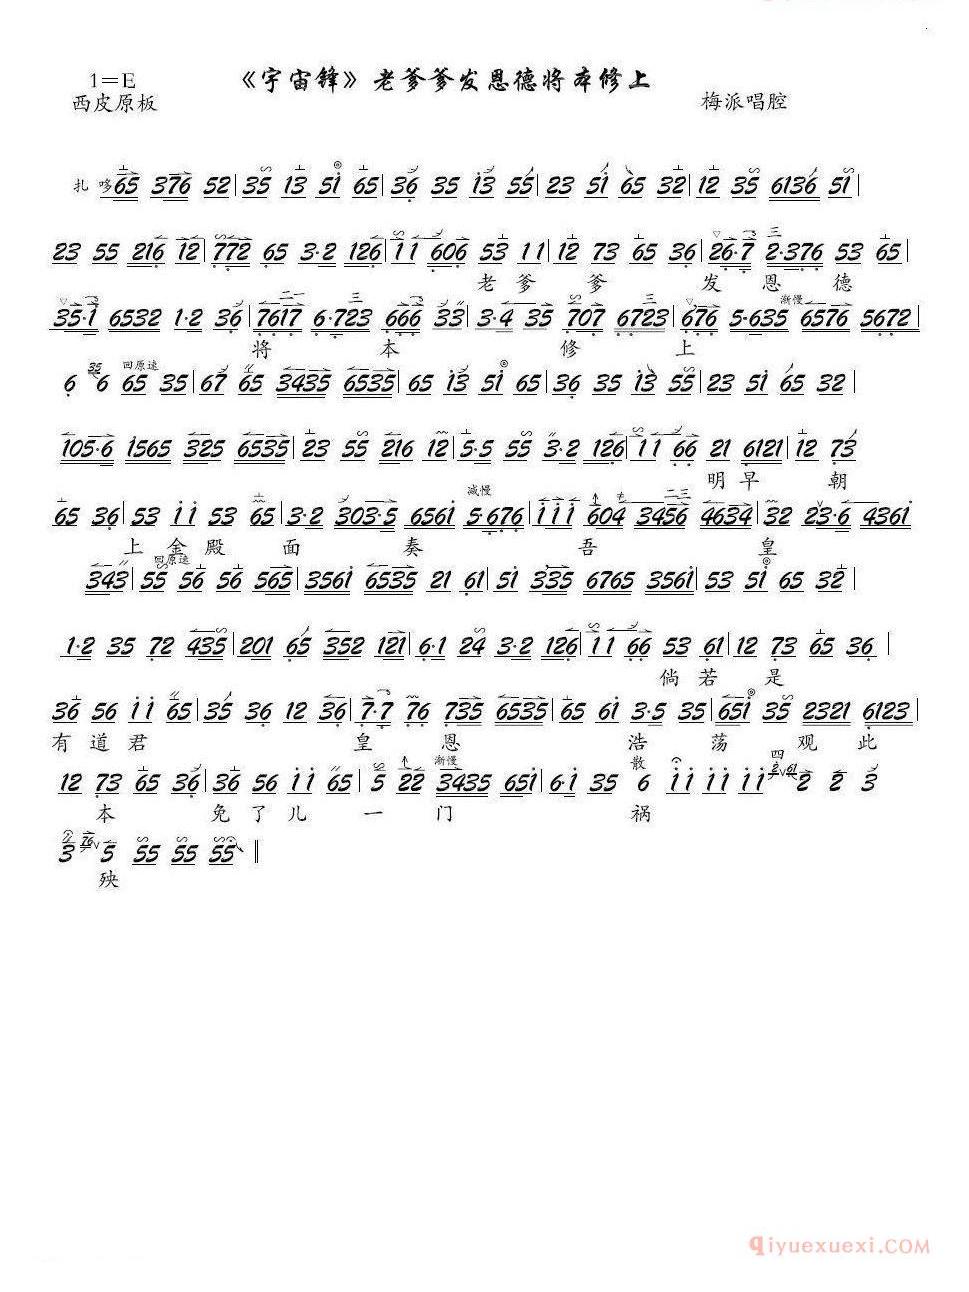 1=E
《宇宙锋》老爹爹发恩德将本修上
西皮原板
梅派唱腔
扎 哆 65 376 52 | 35 13 51 65 | 36 35 13 55 | 23 51 65 32 | 12 35 6136 51 |
23 55 216 12 | 772 65 3·2 126 | 11 606 53 11 | 12 73 65 36 | 26·7 2·376 53 65 |
老 爹 爹 发 恩 德
35·1 6532 1·2 36 | 7617 6·723 666 33 | 3·4 35 707 6723 | 676 5·635 6576 5672 |
渐慢
将 本 修 上
6 35 6 65 35 | 67 65 3435 6535 | 65 13 51 65 | 36 35 13 55 | 23 51 65 32 |
回原速
105·6 1565 325 6535 | 23 55 216 12 | 5·5 55 3·2 126 | 11 66 21 6121 | 12 73
明 早 朝
65 36 | 53 11 53 65 | 3·2 303·5 6561 5·676 | 111 604 3456 4634 | 32 23·6 4361
减慢
上 金 殿 面 奏 吾 皇
回原速
343 | 55 56 56 565 | 3561 6535 21 61 | 51 335 6765 3561 | 53 51 65 32 |
1·2 35 72 435 | 201 65 352 121 | 6·1 24 3·2 126 | 11 66 53 61 | 12 73 65 36 |
倘 若 是
36 56 11 65 | 35 36 12 36 | 7·7 76 735 6535 | 65 61 3·5 35 | 651 35 2321 6123 |
有 道 君 皇 恩 浩 荡 观 此
12 73 65 36 | 36 56 11 11 | 5 22 3435 651 | 6·1 35 6 11 11 11 2 2 3
渐慢
散
四
本 免 了 儿 一 门 祸
3 76 5 55 55 55 ‖
殃
qiyuexuexi.COM